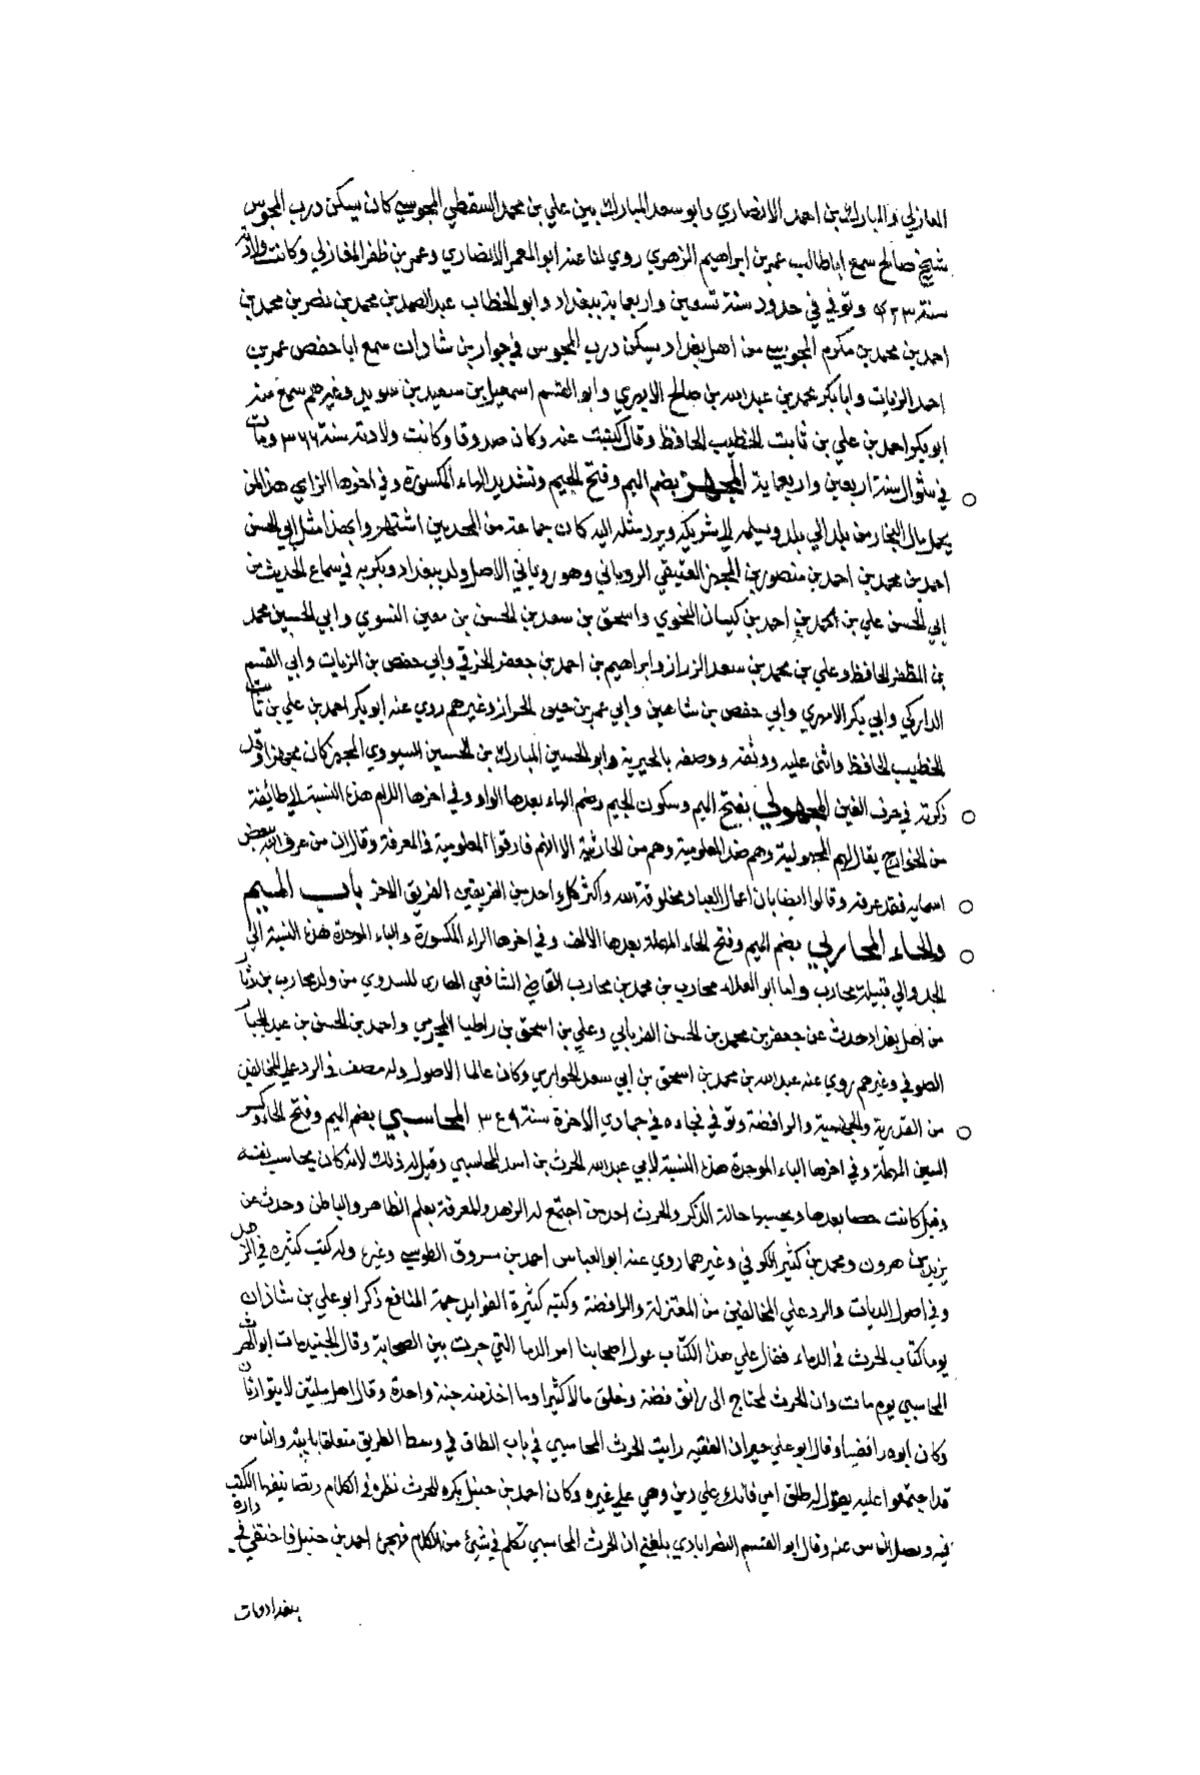 المغازلي والمبارك بن احمد الانصاري وابو سعد المبارك بن علي بن محمد السقطي المجوسي كان يسكن درب المجوس
شيخ صالح سمع اباطالب عمر بن ابراهيم الزهري روي لنا عنه ابو المعمر الانصاري وعمر بن ظفر المغازلي وكانت ولادته
سنة ٤٢٣ وتوفي في حدود سنة تسعين واربعماية ببغداد وابو الخطاب عبد الصمد بن محمد بن محمد بن نصر بن محمد بن
احمد بن محمد بن مكرم المجوسي من اهل بغداد يسكن درب المجوس في جوار بن شاذان سمع ابا حفص عمر بن
احمد الزيات وابا بكر محمد بن عبد الله بن صالح الابهري وابو القسم اسمعيل بن سعيد بن سويد وغيرهم سمع منه
ابو بكر احمد بن علي بن ثابت الخطيب الحافظ وقال كتبت عنه وكان صدوقا وكانت ولادته سنة ٣٦٦ ومات
في شوال سنة اربعين واربعماية المجهز بضم الميم وفتح الجيم وتشديد الهاء المكسورة وفي اخرها الزاي هذا لمن
يحمل مال التجار من بلد الي بلد ويسلمه الي شريكه ويرد مثله اليه كان جماعة من المحدثين اشتهروا بهذا مثل ابي الحسن
احمد بن محمد بن احمد بن منصور بن المجهز العتيقي الروياني وهو روياني الاصل ولد ببغداد وبكر به في سماع الحديث من
ابي الحسن علي بن محمد بن احمد بن كيسان النحوي واسحق بن سعد بن الحسن بن معين النسوي وابي الحسين محمد
بن المظفر الحافظ وعلي بن محمد بن سعد الرزاز وابراهيم بن احمد بن جعفر الخرقي وابي حفص بن الزيات وابي القسم
الداركي وابي بكر الابهري وابي حفص بن شاهين وابي عمر بن حيوي الخزاز وغيرهم روي عنه ابو بكر احمد بن علي بن ثابت
الخطيب الحافظ واثني عليه ووثقه ووصفه بالخيرية وابو الحسين المبارك بن الحسين المجهز كان مجهزا وقد
ذكرته في حرف الغين المجهولي بفتح الميم وسكون الجيم وضم الهاء بعدها الواو وفي اخرها اللام هذه النسبة الي طائفة
من الخوارج يقال لهم المجهولية وهم ضد المعلومية وهم من الحازمية الا انهم فارقوا المعلومية في المعرفة وقال ان من عرف الله ببعض
اسمايه فقد عرفه وقالوا ايضا بان اعمال العباد مخلوقة لله واكثر كل واحد من الفريقين الفريق الاخر باب الميم
والحاء المحاربي بضم الميم وفتح الحاء المهملة بعدها الالف وفي اخرها الراء المكسورة والباء الموحدة هذه النسبة الي
الجد والي قبيلة محارب واما ابو العلاء محارب بن محمد بن محارب القاضي الشافعي المحاربي السدوسي من ولد محارب بن دثار
من اهل بغداد حدث عن جعفر بن محمد بن الحسن الفريابي وعلي بن اسحق بن زاطيا المخرمي واحمد بن الحسن بن عبد الجبار
الصوفي وغيرهم روي عنه عبد الله بن محمد بن اسحق بن ابي سعد الجواري وكان عالما الاصول وله مصنف في الرد علي المخالفين
من القدرية والجهمية والرافضة وتوفي فجاءه في جمادي الاخرة سنة ٣٤٩ المحاسبي بضم الميم وفتح الحاء وكسر
السين المهملة وفي اخرها الباء الموحدة هذه النسبة لابي عبد الله الحرث بن اسد المحاسبي وقيل له ذلك لانه كان يحاسب نفسه
وقيل كانت حصا يعدها ويحسبها حالة الذكر والحرث احد من اجتمع له الزهد والمعرفة بعلم الظاهر والباطن وحدث عن
يزيد بن هرون ومحمد بن كثير الكوفي وغيرهما روي عنه ابو العباس احمد بن مسروق الطوسي وغيره وله كتب كثيرة في الزهد
وفي اصول الديات والرد علي المخالفين من المعتزلة والرافضة وكتبه كثيرة الفوايد جمة المنافع ذكر ابو علي بن شاذان
يوما كتاب الحرث في الدماء فقال علي هذا الكتاب عول اصحابنا امر الدما التي جرت بين الصحابة وقال الجنيد مات ابو الحرث
المحاسبي يوم مات وان الحرث لمحتاج الي دانق فضة وخلف مالا كثيرا وما اخذ منه حبة واحدة وقال اهل ملتين لا يتوارثان
وكان ابوه رافضيا وقال ابو علي خيران الفقيه رايت الحرث المحاسبي في باب الطاق في وسط الطريق متعلقا بابيه والناس
قد اجتمعوا عليه يقول له طلق امي فانك علي دين وهي علي غيره وكان احمد بن حنبل يكره للحرث نظره في الكلام وتصانيفه الكتب
فيه ويصد الناس عنه وقال ابو القسم النصر ابادي بلغني ان الحرث المحاسبي تكلم في شئ من الكلام فهجره احمد بن حنبل فاختفي في داره
ببغداد ومات